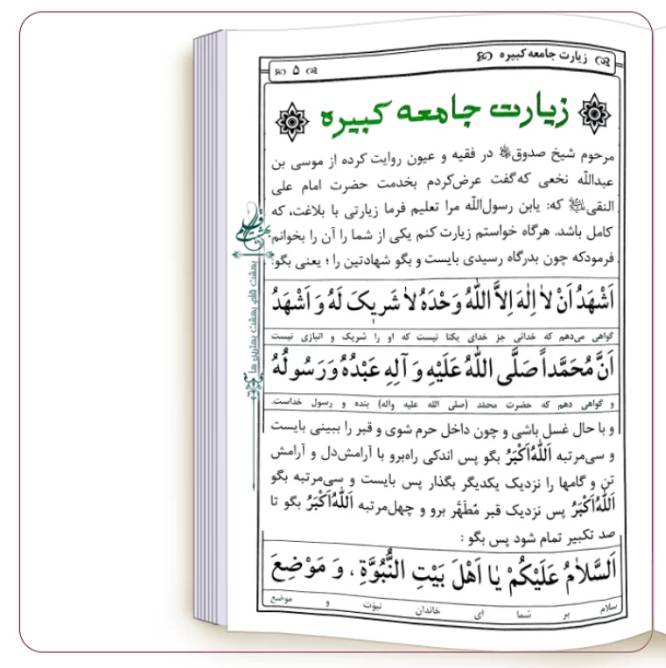 زیارت جامعه کبیره
۵
زیارت جامعه کبیره
مرحوم شیخ صدوق در فقیه و عیون روایت کرده از موسی بن
عبدالله نخعی که گفت عرض کردم بخدمت حضرت امام علی
النقی که: یابن رسول‌الله مرا تعلیم فرما زیارتی با بلاغت، که
کامل باشد. هرگاه خواستم زیارت کنم یکی از شما را آن را بخوانم
فرمودکه چون بدرگاه رسیدی بایست و بگو شهادتین را ؛ یعنی بگو:
اَشْهَدُ اَنْ لاٰ اِلٰهَ اِلاَّ اللّٰهُ وَحْدَهُ لاٰ شَریٖکَ لَهُ وَ اَشْهَدُ
گواهی می‌دهم که خدائی جز خدای یکتا نیست که او را شریک و انبازی نیست
اَنَّ مُحَمَّداً صَلَّی اللّٰهُ عَلَیْهِ وَ آلِهِ عَبْدُهُ وَ رَسُولُهُ
و گواهی دهم که حضرت محمّد (صلی الله علیه واله) بنده و رسول خداست.
و با حال غسل باشی و چون داخل حرم شوی و قبر را ببینی بایست
و سی‌مرتبه اَللّٰهُ اَکْبَرُ بگو پس اندکی راه‌برو با آرامش‌دل و آرامش
تن و گامها را نزدیک یکدیگر بگذار پس بایست و سی‌مرتبه بگو
اَللّٰهُ اَکْبَرُ پس نزدیک قبر مُطَهَّر برو و چهل‌مرتبه اَللّٰهُ اَکْبَرُ بگو تا
صد تکبیر تمام شود پس بگو :
اَلسَّلاٰمُ عَلَیْکُمْ یٰا اَهْلَ بَیْتِ النُّبُوَّةِ ، وَ مَوْضِعَ
سلام بر شما ای خاندان نبوّت و موضع